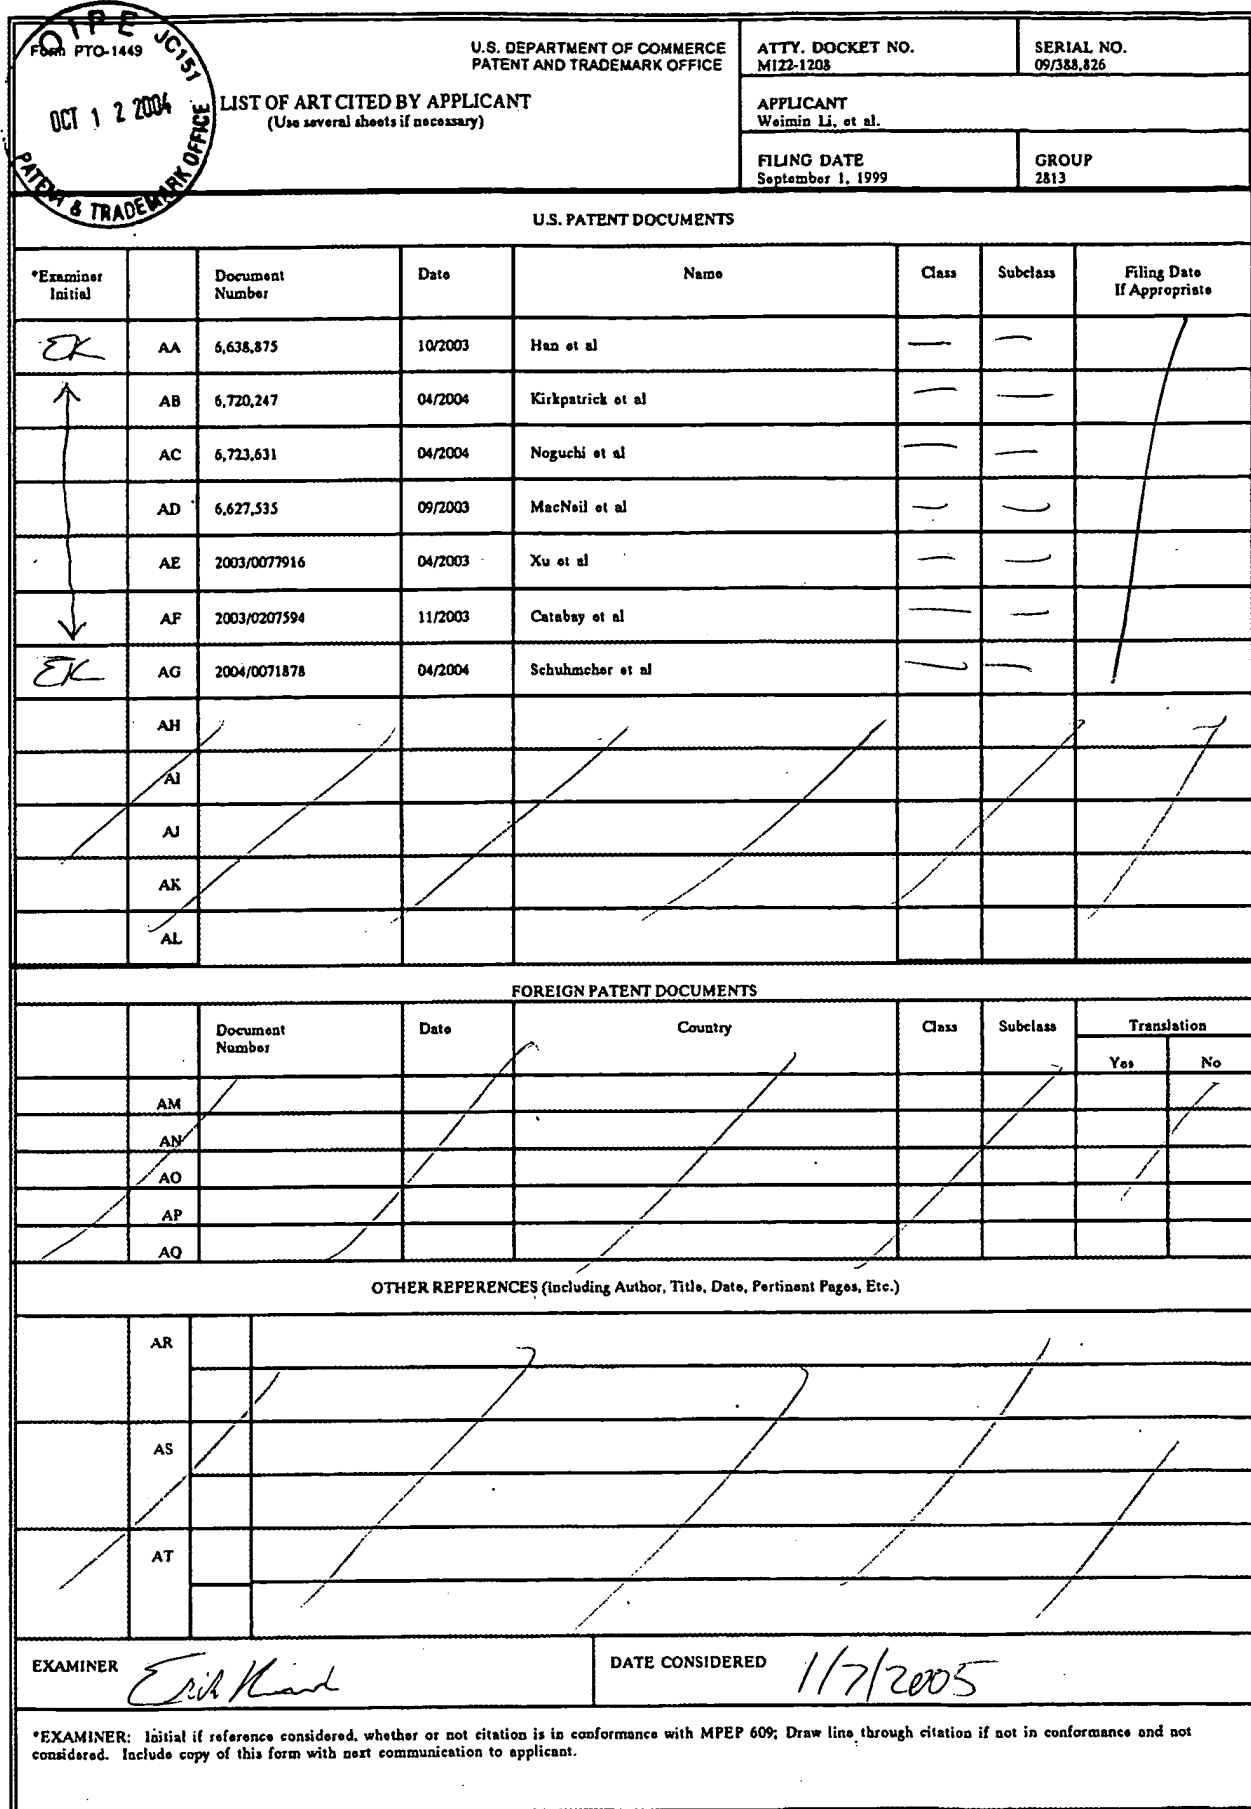 OIPE JC151
OCT 1 2 2004
PATENT & TRADEMARK OFFICE
Form PTO-1449
U.S. DEPARTMENT OF COMMERCE
PATENT AND TRADEMARK OFFICE
LIST OF ART CITED BY APPLICANT
(Use several sheets if necessary)
ATTY. DOCKET NO.
MI22-1208
SERIAL NO.
09/388,826
APPLICANT
Weimin Li, et al.
FILING DATE
September 1, 1999
GROUP
2813
U.S. PATENT DOCUMENTS
*Examiner Initial Document Number Date Name Class Subclass Filing Date If Appropriate
EK AA 6,638,875 10/2003 Han et al — —
AB 6,720,247 04/2004 Kirkpatrick et al — —
AC 6,723,631 04/2004 Noguchi et al — —
AD 6,627,535 09/2003 MacNeil et al — —
AE 2003/0077916 04/2003 Xu et al — —
AF 2003/0207594 11/2003 Catabay et al — —
EK AG 2004/0071878 04/2004 Schuhmcher et al — —
AH
AI
AJ
AK
AL
FOREIGN PATENT DOCUMENTS
Document Number Date Country Class Subclass Translation
Yes No
AM
AN
AO
AP
AQ
OTHER REFERENCES (Including Author, Title, Date, Pertinent Pages, Etc.)
AR
AS
AT
EXAMINER Erik
DATE CONSIDERED 1/7/2005
*EXAMINER: Initial if reference considered, whether or not citation is in conformance with MPEP 609; Draw line through citation if not in conformance and not
considered. Include copy of this form with next communication to applicant.